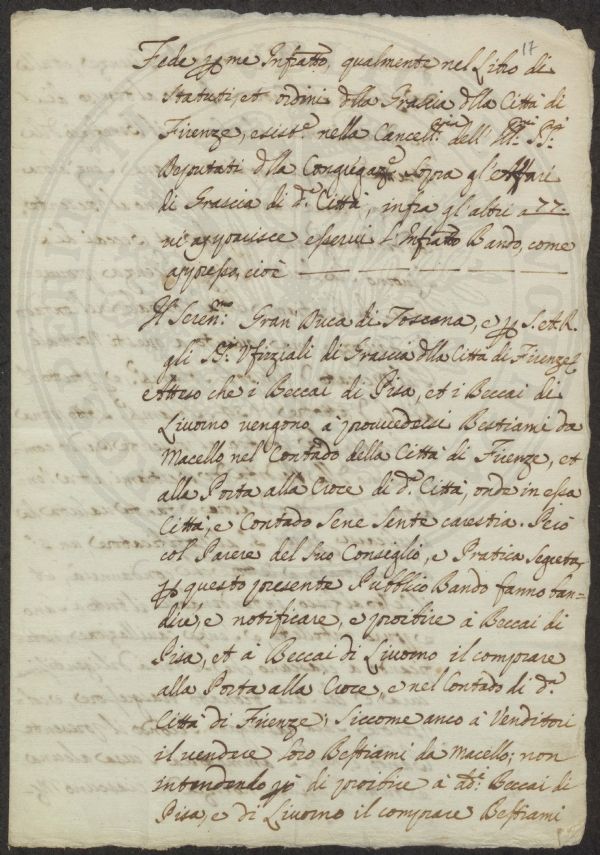 17
Fede p me Infratto, qualmente nel Libro di
Statuti, et ordini dlla Grascia dlla Città di
Firenze, esist.e nella Cancell.ria dell' Ill.mi SS.ri
Deputati dlla Congregaz.e sopra gl'Affari
di Grascia di d.a Città, infra gl'altri a 77
vi apparisce esservi l'Infratto Bando, come
appresso, cioè
Il Seren.mo Gran Duca di Toscana, e p S. A. R.
gli SS.ri Vfiziali di Grascia dlla Città di Firenze
Atteso che i Beccai di Pisa, et i Beccai di
Livorno vengono à provvedersi Bestiami da
Macello nel Contado della Città di Firenze, et
alla Porta alla Croce di d.a Città, onde in essa
Città, e Contado sene sente carestia. Però
col Parere del suo Consiglio, e Pratica Segreta,
p questo presente Pubblico Bando fanno ban=
dire, e notificare, e proibire à Beccai di
Pisa, et à Beccai di Livorno il comprare
alla Porta alla Croce, e nel Contado di d.a
Città di Firenze; siccome anco à Venditori
il vendere loro Bestiami da Macello; non
intendendo però di proibire a dd.i Beccai di
Pisa, e di Livorno il comprare Bestiami